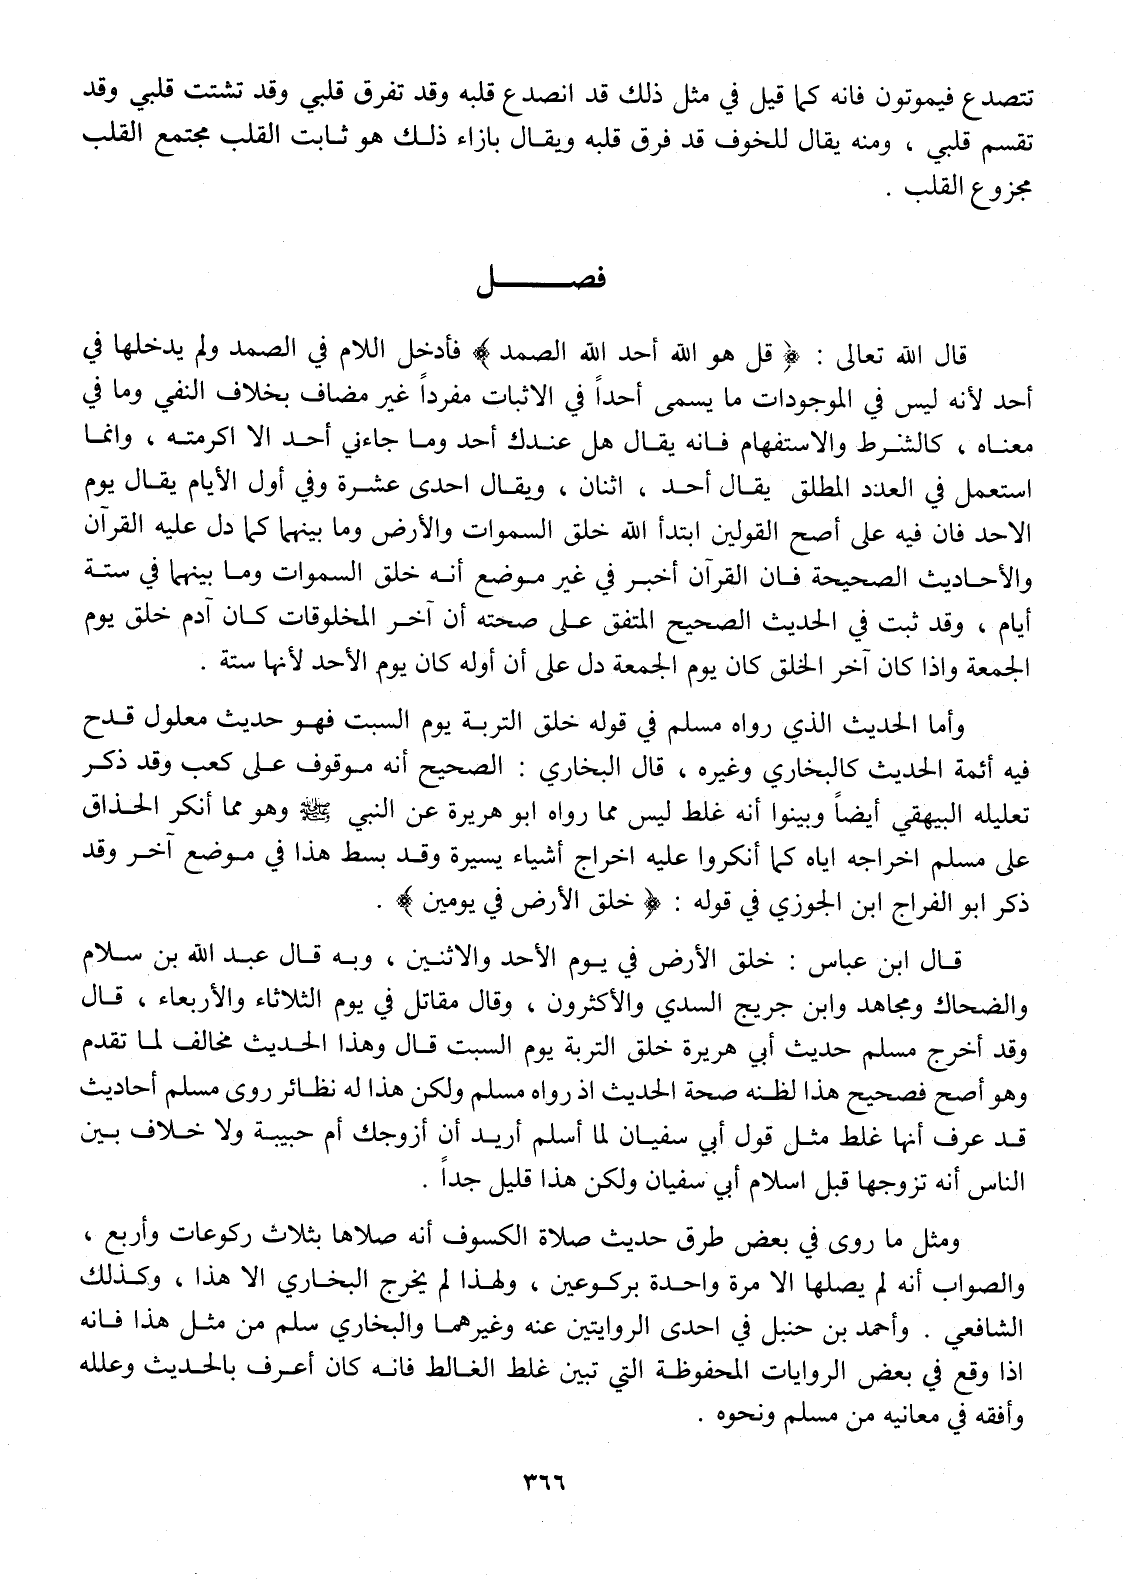 تتصدع فيموتون فانه كما قيل في مثل ذلك قد انصدع قلبه وقد تفرق قلبي وقد تشتت قلبي وقد
تقسم قلبي ، ومنه يقال للخوف قد فرق قلبه ويقال بازاء ذلك هو ثابت القلب مجتمع القلب
مجزوع القلب .
فصل
قال الله تعالى : ﴿ قل هو الله أحد الله الصمد ﴾ فأدخل اللام في الصمد ولم يدخلها في
أحد لأنه ليس في الموجودات ما يسمى أحداً في الاثبات مفرداً غير مضاف بخلاف النفي وما في
معناه ، كالشرط والاستفهام فانه يقال هل عندك أحد وما جاءني أحد الا اكرمته ، وانما
استعمل في العدد المطلق يقال أحد ، اثنان ، ويقال احدى عشرة وفي أول الأيام يقال يوم
الاحد فان فيه على أصح القولين ابتدأ الله خلق السموات والأرض وما بينهما كما دل عليه القرآن
والأحاديث الصحيحة فان القرآن أخبر في غير موضع أنه خلق السموات وما بينهما في ستة
أيام ، وقد ثبت في الحديث الصحيح المتفق على صحته أن آخر المخلوقات كان آدم خلق يوم
الجمعة واذا كان آخر الخلق كان يوم الجمعة دل على أن أوله كان يوم الأحد لأنها ستة .
وأما الحديث الذي رواه مسلم في قوله خلق التربة يوم السبت فهو حديث معلول قدح
فيه أئمة الحديث كالبخاري وغيره ، قال البخاري : الصحيح أنه موقوف على كعب وقد ذكر
تعليله البيهقي أيضاً وبينوا أنه غلط ليس مما رواه ابو هريرة عن النبي ﷺ وهو مما أنكر الحذاق
على مسلم اخراجه اياه كما أنكروا عليه اخراج أشياء يسيرة وقد بسط هذا في موضع آخر وقد
ذكر ابو الفراج ابن الجوزي في قوله : ﴿ خلق الأرض في يومين ﴾ .
قال ابن عباس : خلق الأرض في يوم الأحد والاثنين ، وبه قال عبد الله بن سلام
والضحاك ومجاهد وابن جريج السدي والأكثرون ، وقال مقاتل في يوم الثلاثاء والأربعاء ، قال
وقد أخرج مسلم حديث أبي هريرة خلق التربة يوم السبت قال وهذا الحديث مخالف لما تقدم
وهو أصح فصحيح هذا لظنه صحة الحديث اذ رواه مسلم ولكن هذا له نظائر روى مسلم أحاديث
قد عرف أنها غلط مثل قول أبي سفيان لما أسلم أريد أن أزوجك أم حبيبة ولا خلاف بين
الناس أنه تزوجها قبل اسلام أبي سفيان ولكن هذا قليل جداً .
ومثل ما روى في بعض طرق حديث صلاة الكسوف أنه صلاها بثلاث ركوعات وأربع ،
والصواب أنه لم يصلها الا مرة واحدة بركوعين ، ولهذا لم يخرج البخاري الا هذا ، وكذلك
الشافعي . وأحمد بن حنبل في احدى الروايتين عنه وغيرهما والبخاري سلم من مثل هذا فانه
اذا وقع في بعض الروايات المحفوظة التي تبين غلط الغالط فانه كان أعرف بالحديث وعلله
وأفقه في معانيه من مسلم ونحوه .
٣٦٦